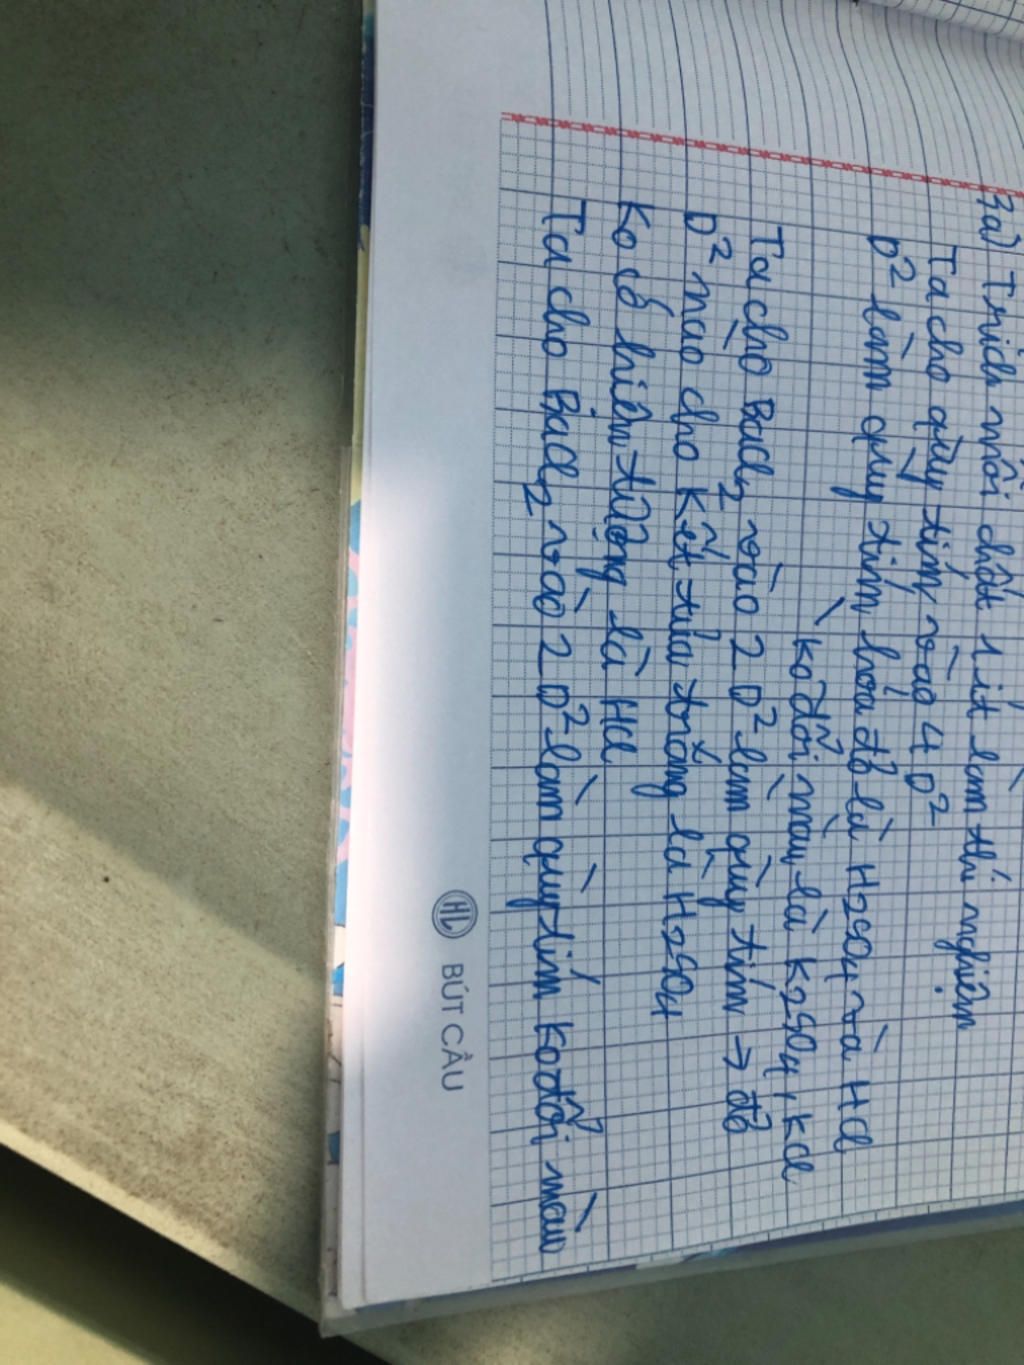 3a) Trích mỗi chất 1 ít làm thí nghiệm
Ta cho quỳ tím vào 4 D²
D² làm quỳ tím hóa đỏ là H₂SO₄ và HCl
ko đổi màu là K₂SO₄, KCl
Ta cho BaCl₂ vào 2 D² làm quỳ tím → đỏ
D² nào cho kết tủa trắng là H₂SO₄
Ko có hiện tượng là HCl
Ta cho BaCl₂ vào 2 D² làm quỳ tím ko đổi màu
HL BÚT CẦU